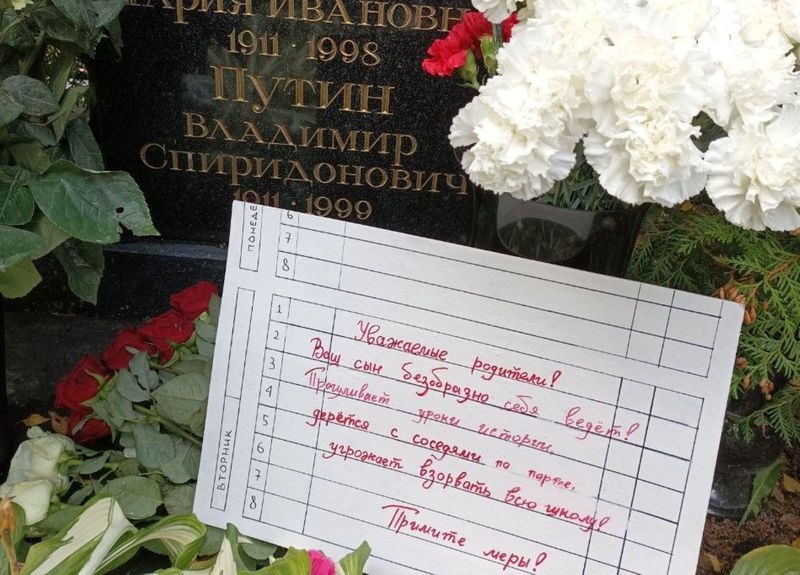 МАРИЯ ИВАНОВНА
1911 · 1998
ПУТИН
ВЛАДИМИР
СПИРИДОНОВИЧ
1911 · 1999
ПОНЕДЕ
6
7
8
ВТОРНИК
1
2
3
4
5
6
7
8
Уважаемые родители!
Ваш сын безобразно себя ведёт!
Прогуливает уроки истории,
дерётся с соседями по парте,
угрожает взорвать всю школу!
Примите меры!